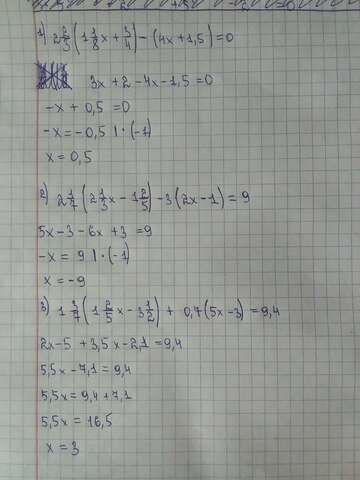 1) 2 2/3 (1 1/8 x + 3/4) - (4x + 1,5) = 0
3x + 2 - 4x - 1,5 = 0
-x + 0,5 = 0
-x = -0,5 | · (-1)
x = 0,5
2) 2 1/7 (2 1/3 x - 1 2/5) - 3 (2x - 1) = 9
5x - 3 - 6x + 3 = 9
-x = 9 | · (-1)
x = -9
3) 1 3/7 (1 2/5 x - 3 1/2) + 0,7 (5x - 3) = 9,4
2x - 5 + 3,5x - 2,1 = 9,4
5,5x - 7,1 = 9,4
5,5x = 9,4 + 7,1
5,5x = 16,5
x = 3